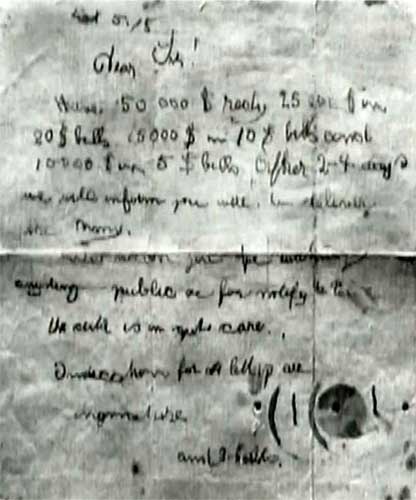 Dear Sir!
Have 50 000 $ redy 25 000 $ in
20 $ bills 15000 $ in 10 $ bills and
10000 $ in 5 $ bills After 2-4 days
we will inform you were to deliver
the Mony.
We warn you for making
anyding public or for notify the
the child is in gut care.
for all letters are
singnature
and 3 holes.